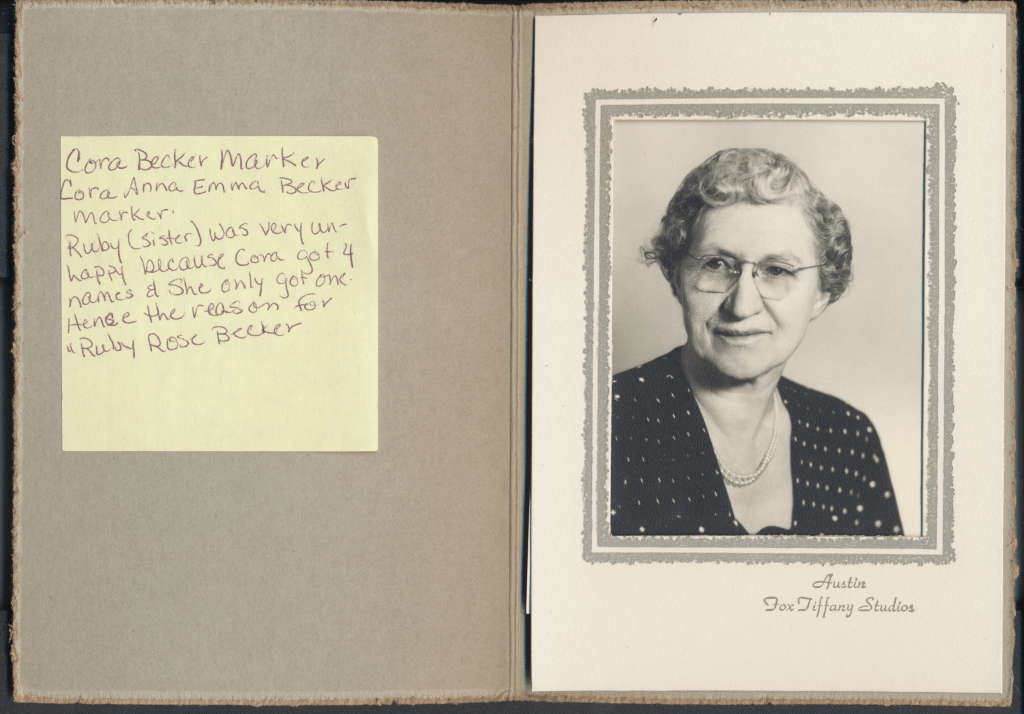 Cora Becker Marker
Cora Anna Emma Becker
marker.
Ruby (sister) was very un-
happy because Cora got 4
names & She only got one.
Hense the reason for
"Ruby Rose Becker
Austin
Fox Tiffany Studios